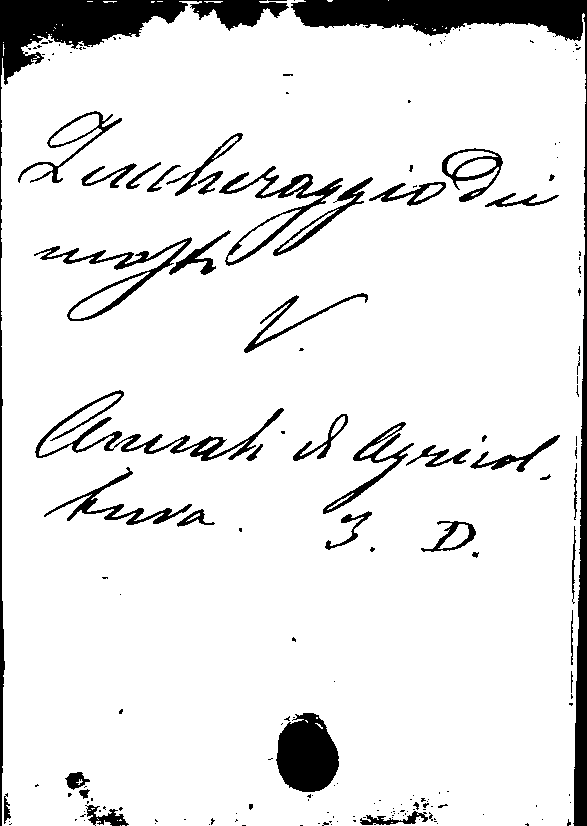 Zuccheraggio dei
mosti
V.
Annali di Agricol-
tura. 3. D.